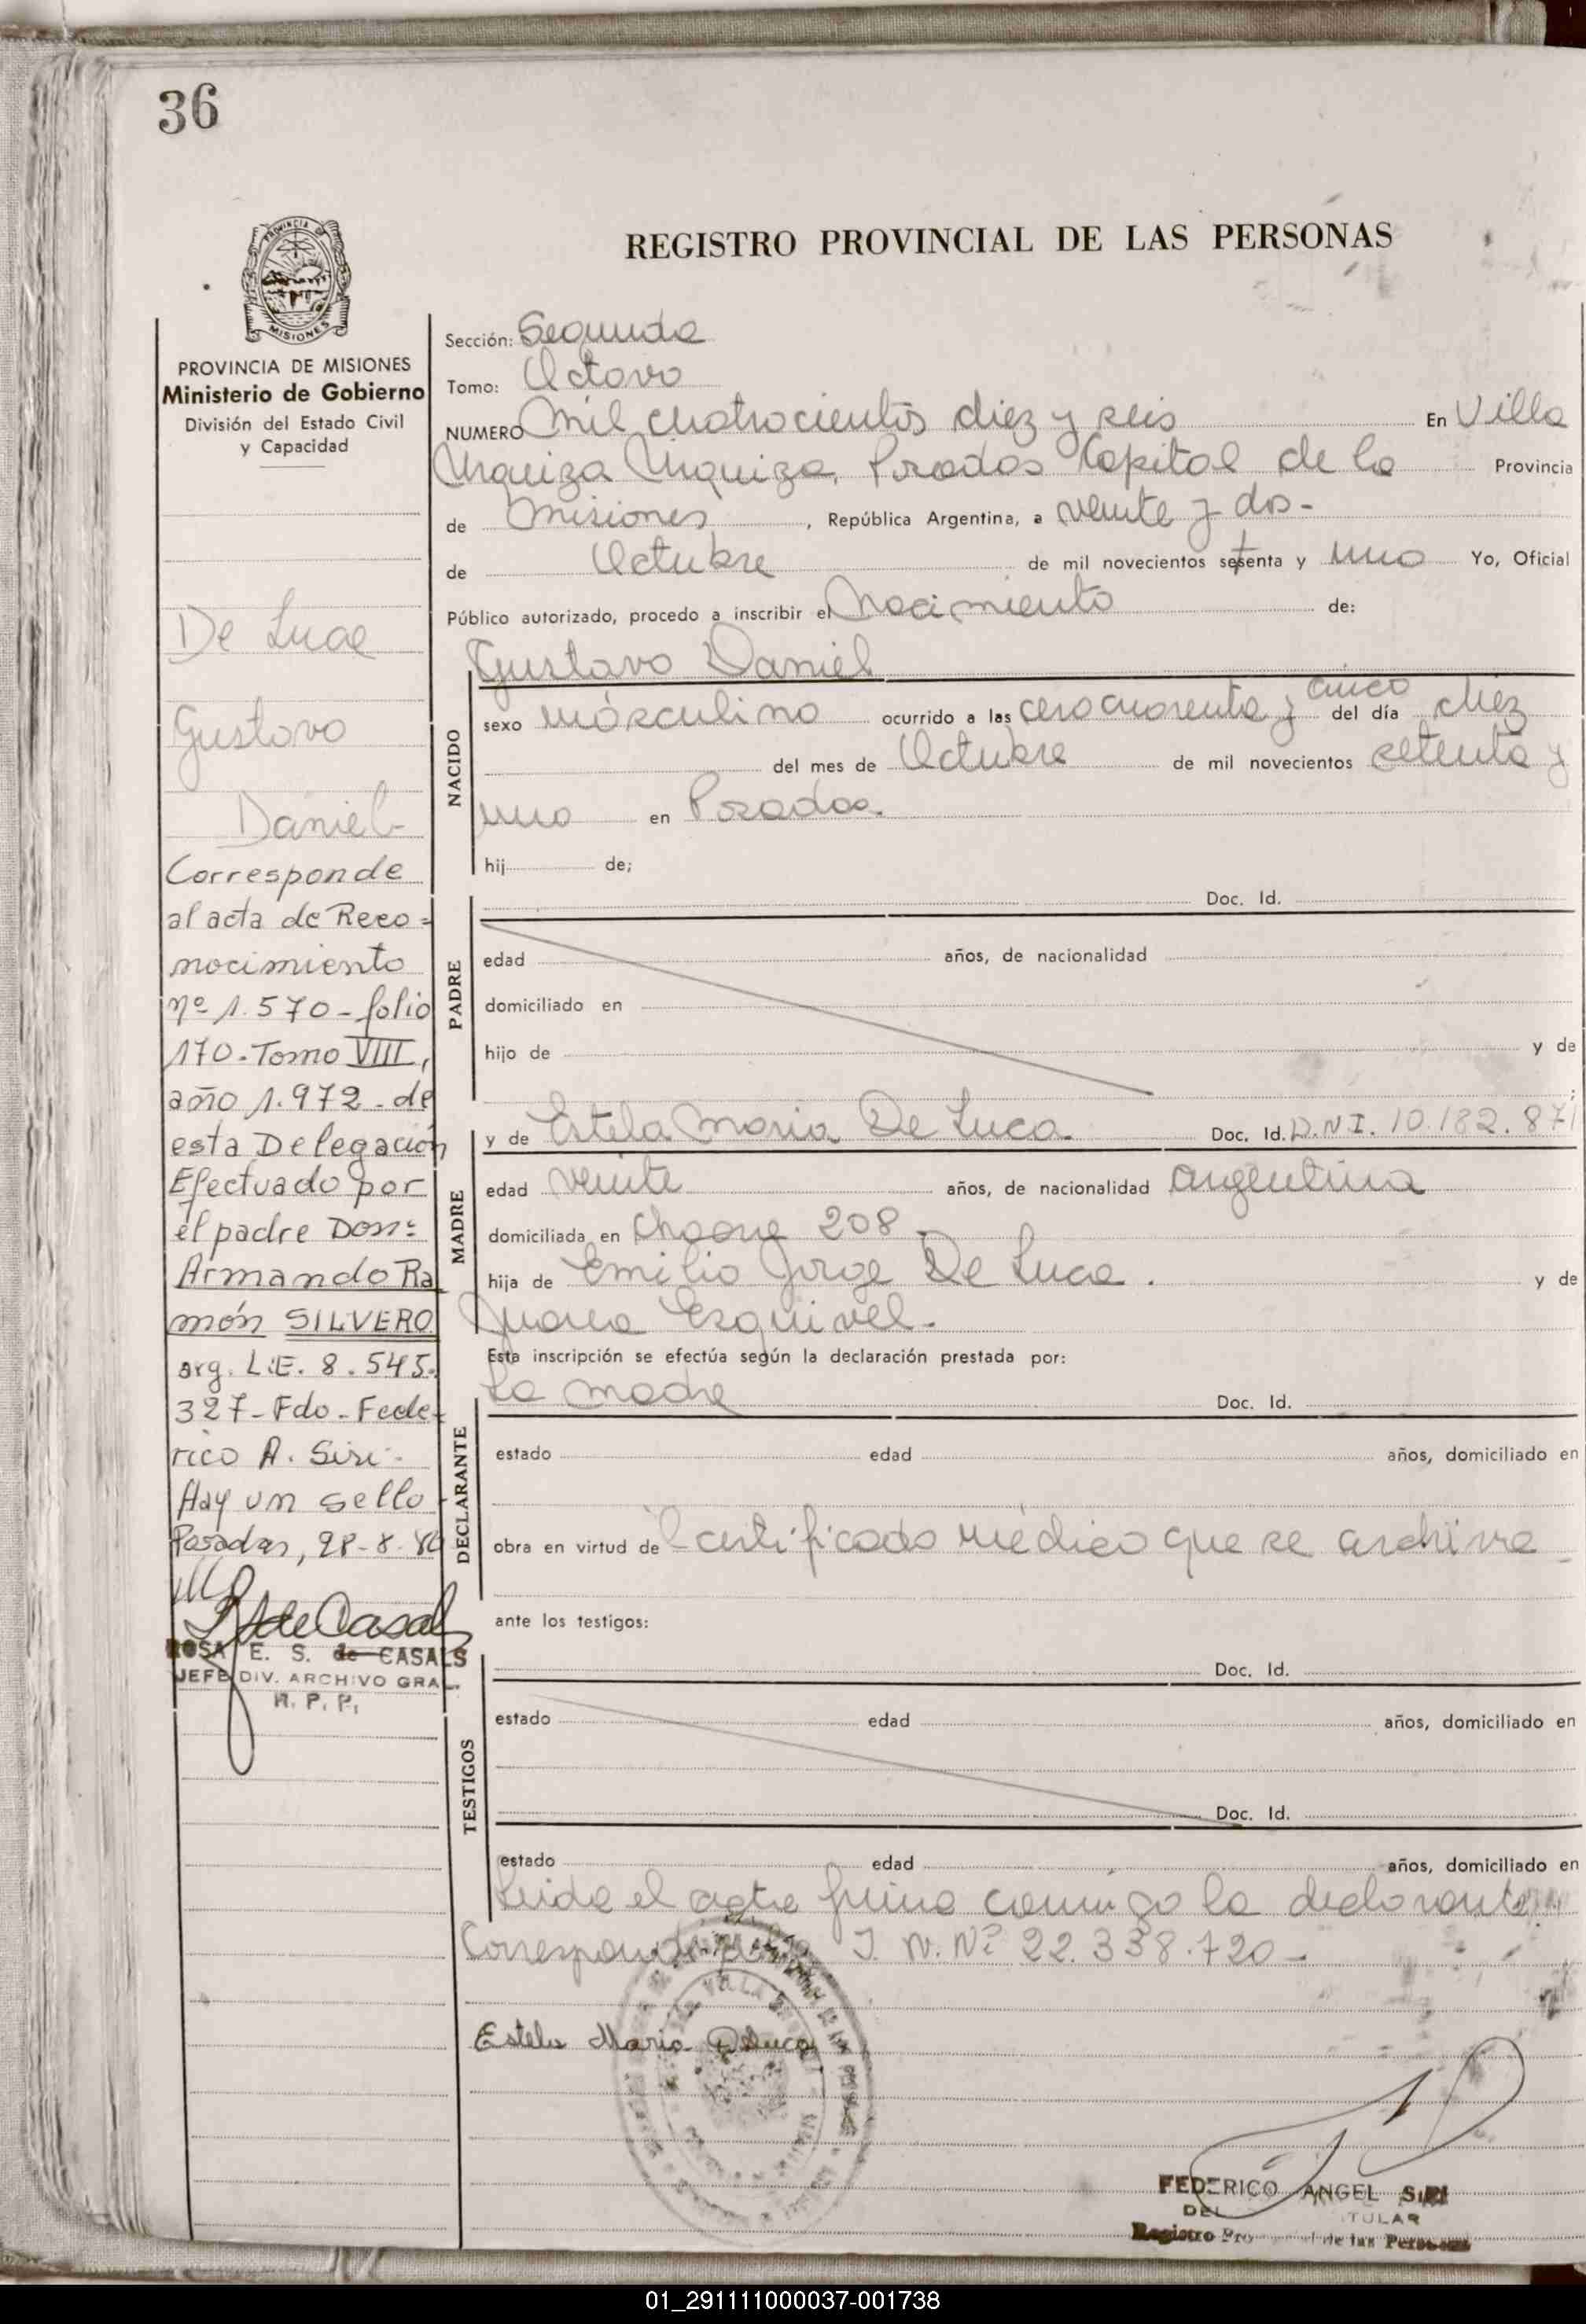 36
REGISTRO PROVINCIAL DE LAS PERSONAS
PROVINCIA
MISIONES
PROVINCIA DE MISIONES
Ministerio de Gobierno
División del Estado Civil
y Capacidad
De Luca
Gustavo
Daniel
Corresponde
al acta de Reco=
nocimiento
nº 1.570-folio
170-Tomo VIII,
año 1.972-de
esta Delegación
Efectuado por
el padre Don:
Armando Ra
món SILVERO
arg. L.E. 8.545.
327-Fdo-Fede-
rico A. Siri-
Hay un sello
Posadas, 28-8-
ROSA E. S. de CASALS
JEFE DIV. ARCHIVO GRAL.
R. P. P.
Sección: Segunda
Tomo: Octavo
NUMERO Mil cuatrocientos diez y seis En Villa
Urquiza Urquiza, Posadas Capital de la Provincia
de Misiones, República Argentina, a veinte y dos-
de Octubre de mil novecientos setenta y uno Yo, Oficial
Público autorizado, procedo a inscribir el Nacimiento de:
Gustavo Daniel
NACIDO
sexo másculino ocurrido a las cero cuarenta y cinco del día diez
del mes de Octubre de mil novecientos setenta y
uno en Posadas.
hij de;
Doc. Id.
PADRE
edad años, de nacionalidad
domiciliado en
hijo de y de
;
MADRE
y de Estela Maria De Luca Doc. Id. D.N.I. 10.182.871
edad veinte años, de nacionalidad argentina
domiciliada en 208
hija de Emilio Jorge De Luca. y de
Juana Esquivel.
Esta inscripción se efectúa según la declaración prestada por:
La madre Doc. Id.
DECLARANTE
estado edad años, domiciliado en
obra en virtud del certificado médico que se archiva
ante los testigos:
Doc. Id.
TESTIGOS
estado edad años, domiciliado en
Doc. Id.
estado edad años, domiciliado en
Leida el acta firma conmigo la declarante
Corresponde I. N. Nº 22.338.720-
Estela Maria DeLuca
FEDERICO ANGEL SIRI
DEL TITULAR
Registro Provincial de las Personas
01_291111000037-001738